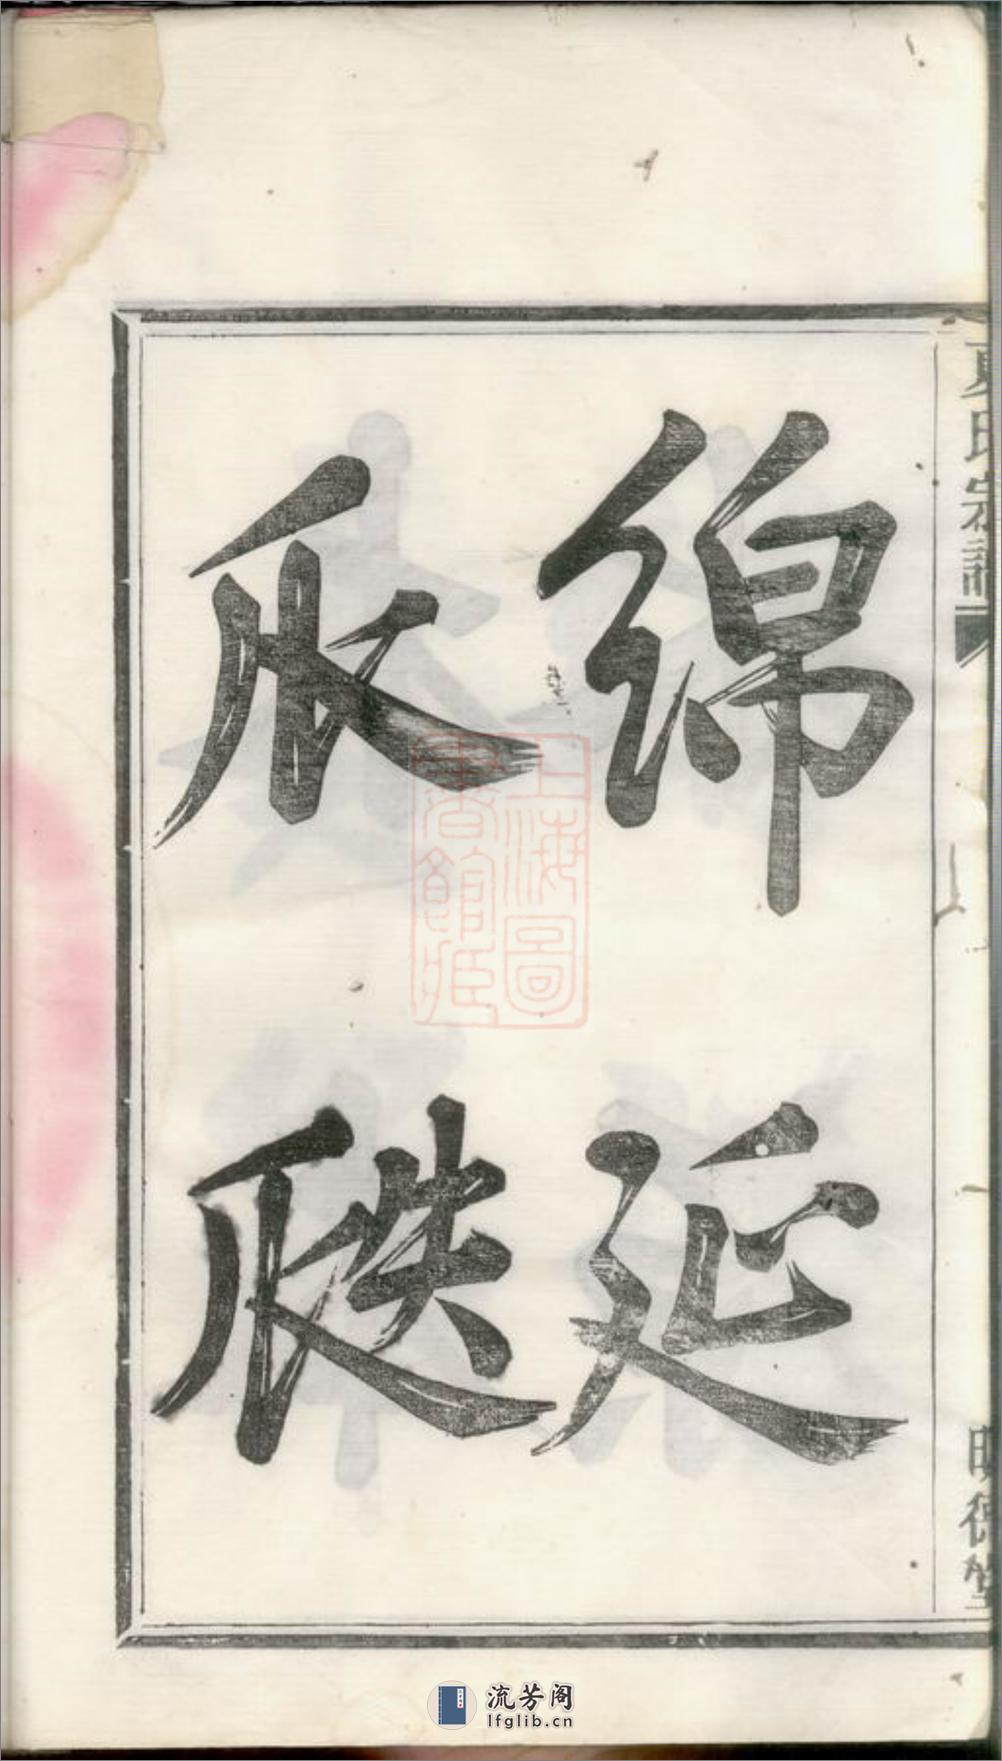 綿延
瓜瓞
夏氏宗譜
一
明德堂
上海圖
書館藏
流芳阁
lfglib.cn